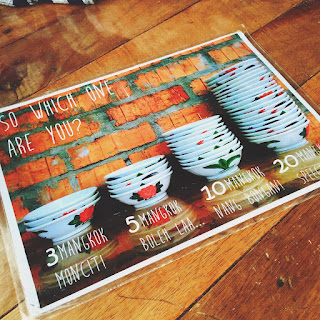 SO WHICH ONE
ARE YOU?
3 MANGKOK
MONCITI
5 MANGKOK
BOLEH LAA...
10 MANGKOK
NANG BUNGKUI
20